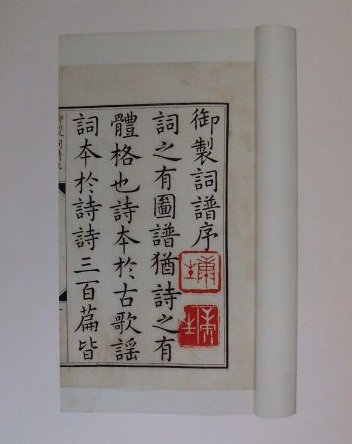 御製詞譜序
詞之有圖譜猶詩之有
體格也詩本於古歌謡
詞本於詩詩三百篇皆
御製詞譜序